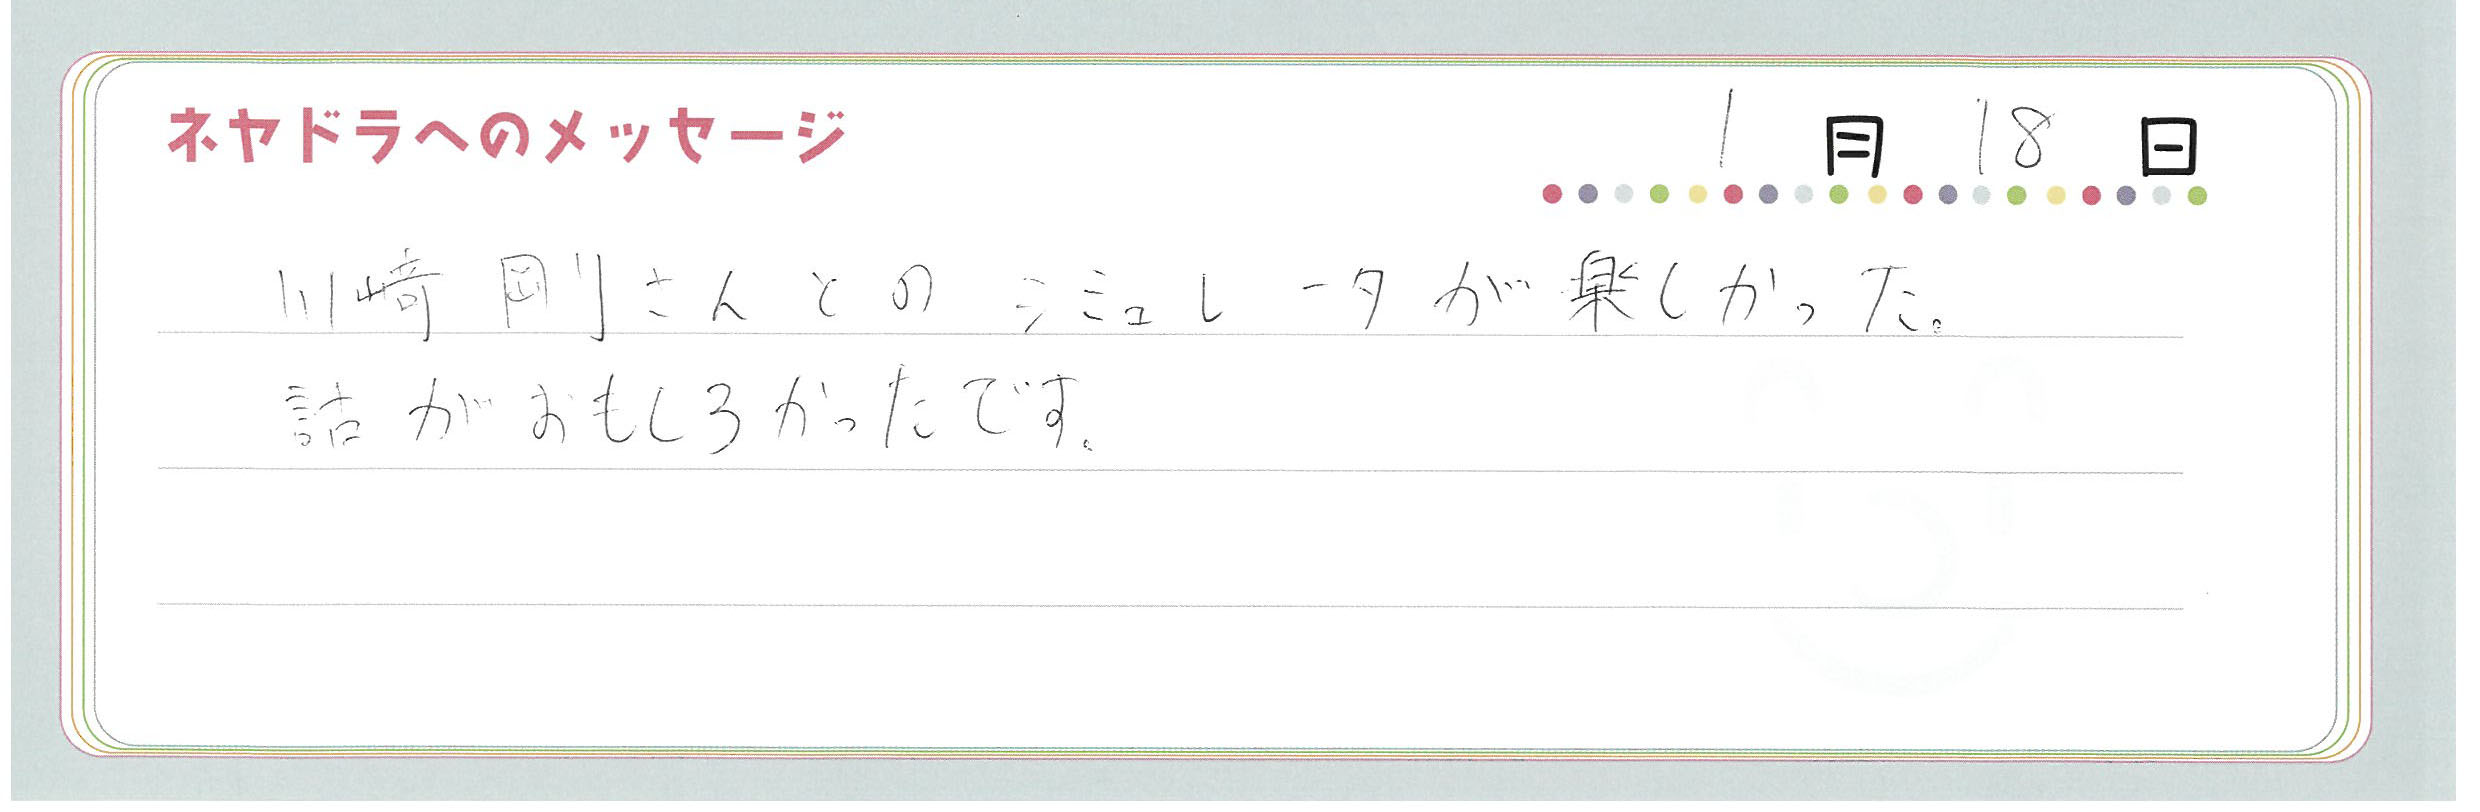 ネヤドラへのメッセージ
1月18日
川﨑剛さんとのシミュレータが楽しかった。
話がおもしろかったです。